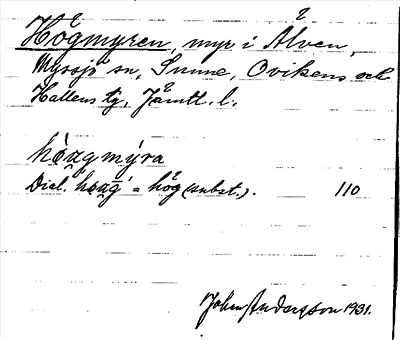 Högmyren, myr i Ålven,
Myssjö sn, Sunne, Ovikens och
Hallens tg, Jämtl. l.
hòugmýra
Dial. houg = hög (subst.). 110
John Andersson 1931.